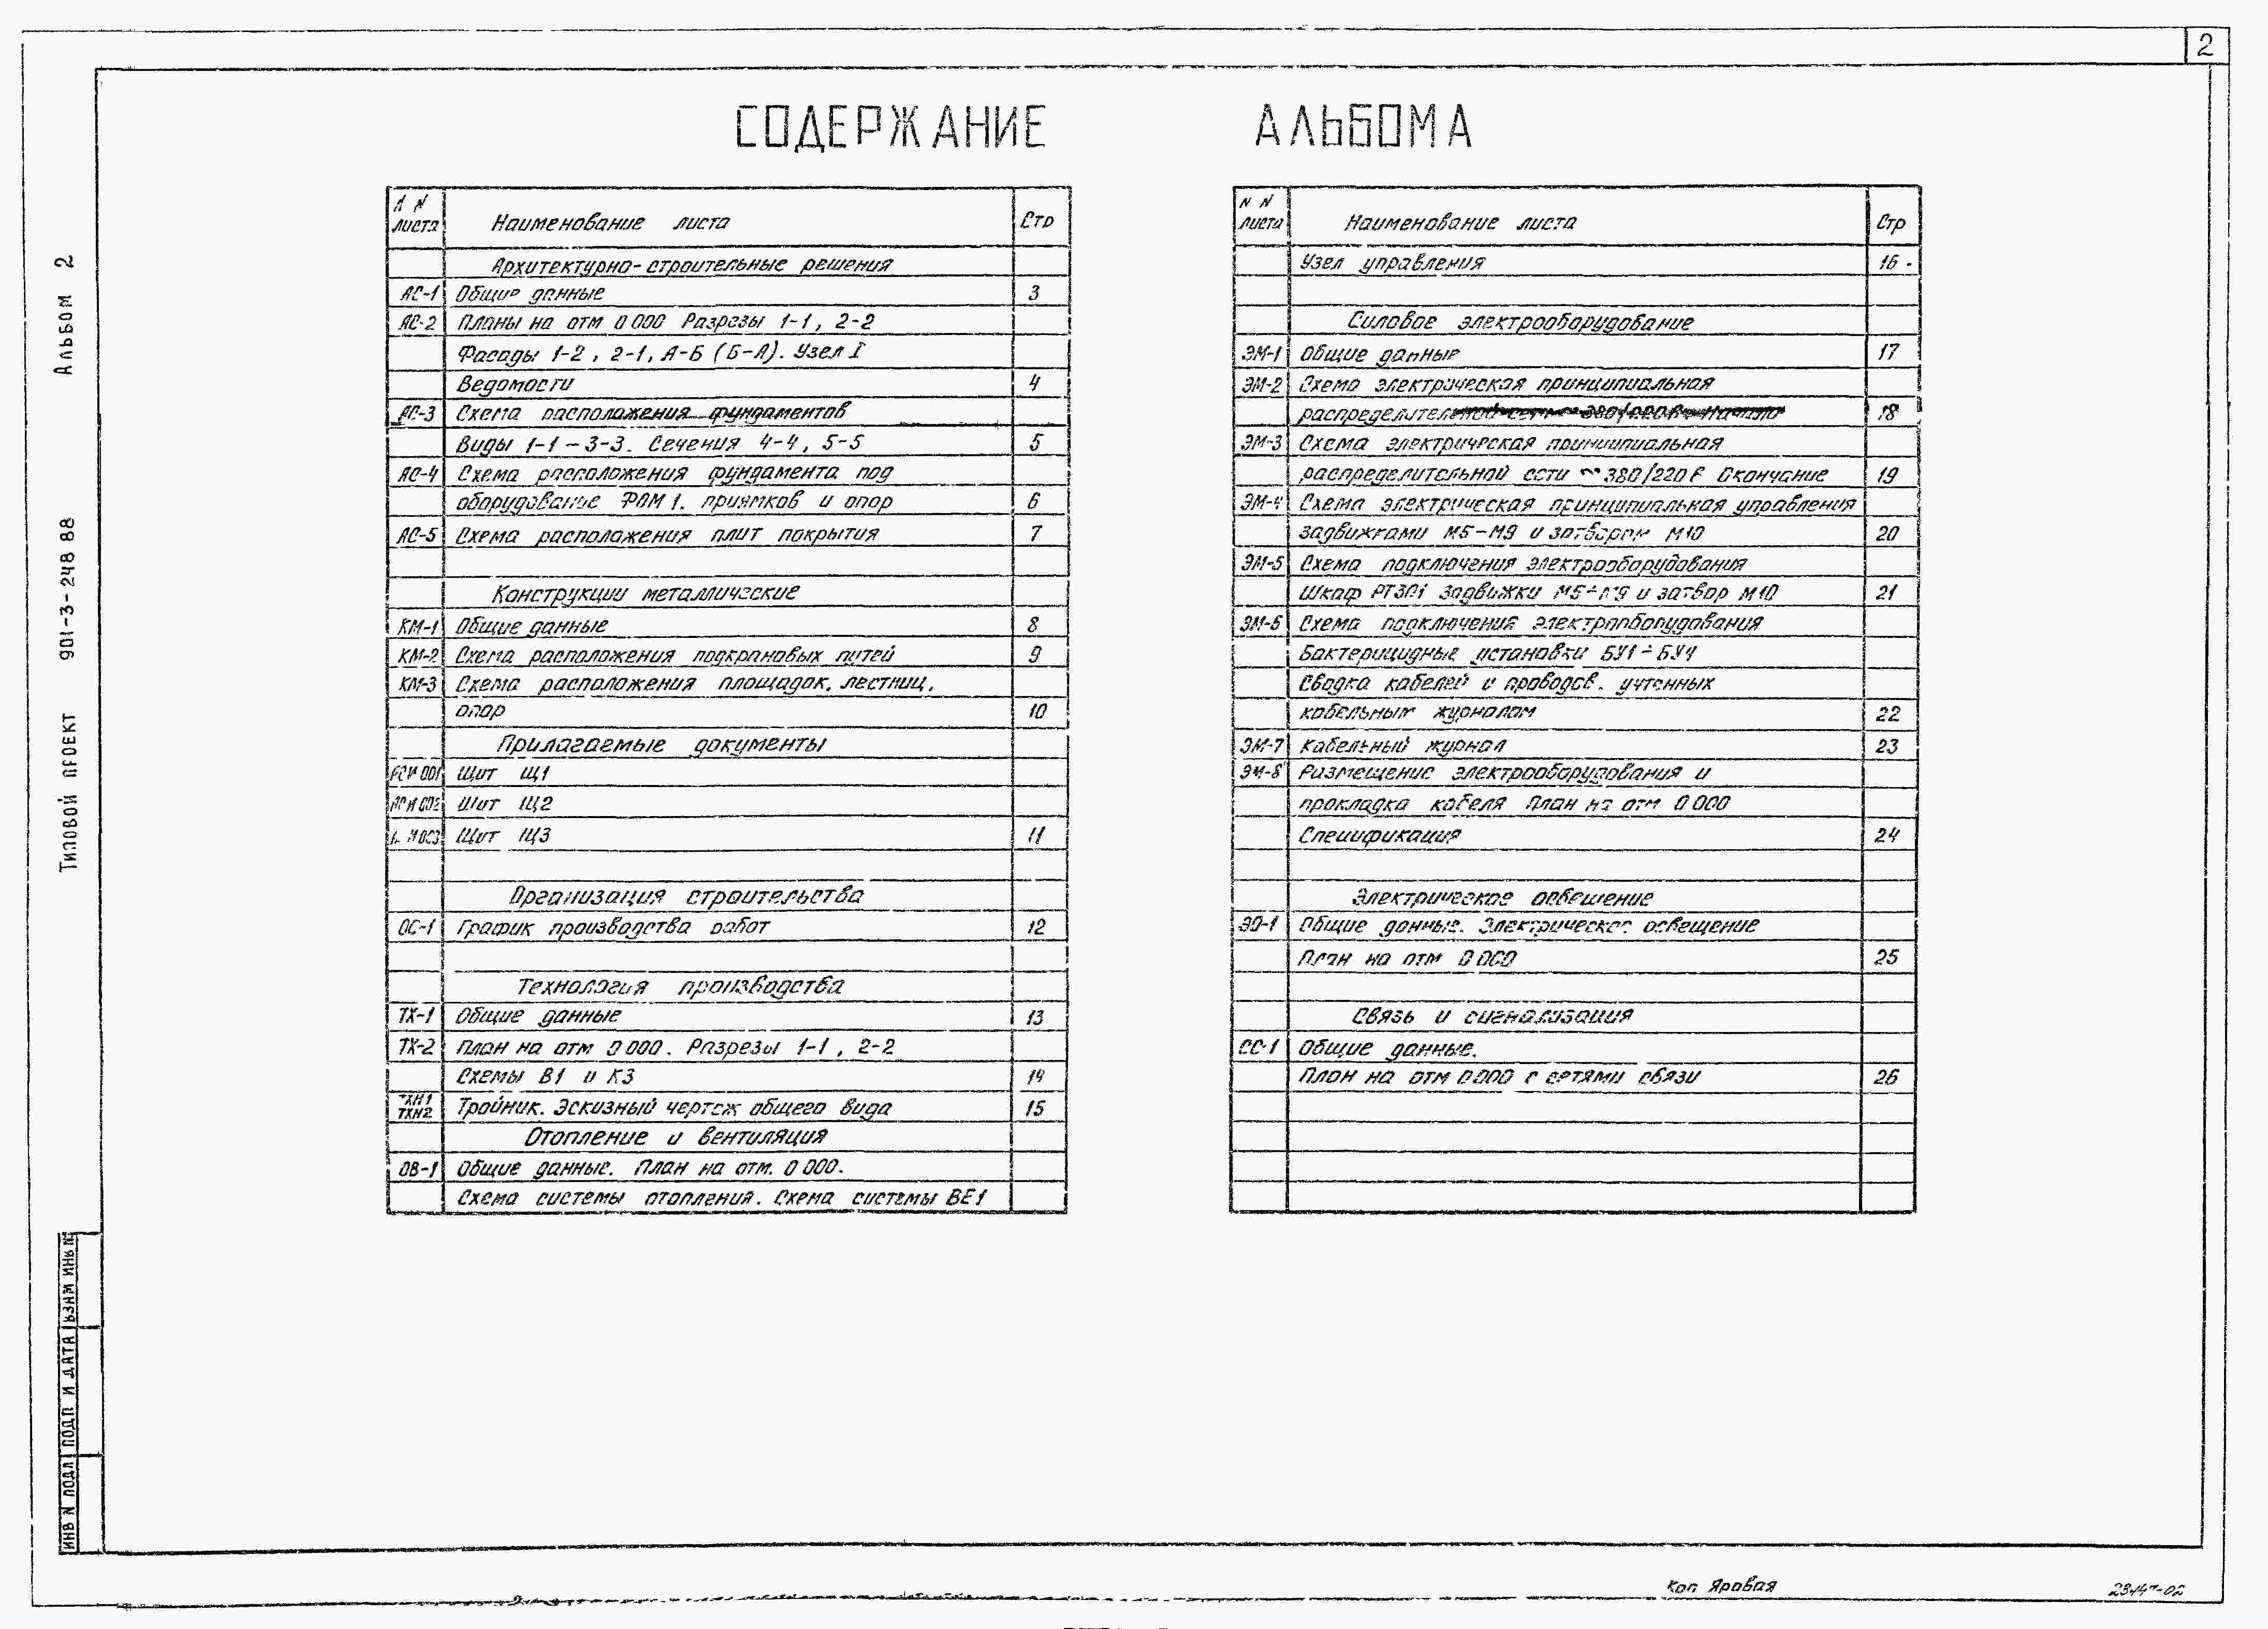 2
СОДЕРЖАНИЕ АЛЬБОМА
листа Наименование листа Стр
Архитектурно-строительные решения
АС-1 Общие данные 3
АС-2 Планы на отм 0 000 Разрезы 1-1, 2-2
Фасады 1-2, 2-1, А-Б (Б-А). Узел I
Ведомости 4
АС-3 Схема расположения фундаментов
Виды 1-1 – 3-3. Сечения 4-4, 5-5 5
АС-4 Схема расположения фундамента под
оборудование ФОМ 1. приямков и опор 6
АС-5 Схема расположения плит покрытия 7
Конструкции металлические
КМ-1 Общие данные 8
КМ-2 Схема расположения подкрановых путей 9
КМ-3 Схема расположения площадок, лестниц,
опор 10
Прилагаемые документы
Щит Щ1
Щит Щ2
Щит Щ3 11
Организация строительства
ОС-1 График производства работ 12
Технология производства
ТХ-1 Общие данные 13
ТХ-2 План на отм 0 000. Разрезы 1-1, 2-2
Схемы В1 и К3 14
ТХН1
ТХН2 Тройник. Эскизный чертеж общего вида 15
Отопление и вентиляция
ОВ-1 Общие данные. План на отм. 0 000.
Схема системы отопления. Схема системы ВЕ1
N N
листа Наименование листа Стр
Узел управления 16
Силовое электрооборудование
ЭМ-1 Общие данные 17
ЭМ-2 Схема электрическая принципиальная
18
ЭМ-3 Схема электрическая принципиальная
распределительной сети ~ 380/220 В Окончание 19
ЭМ-4 Схема электрическая принципиальная управления
задвижками М5-М9 и затвором М10 20
ЭМ-5 Схема подключения электрооборудования
Шкаф РТ301 Задвижки М5÷М9 и затвор М10 21
ЭМ-6 Схема подключения электрооборудования
Бактерицидные установки БУ1÷БУ4
Сводка кабелей и проводов, учтенных
кабельным журналом 22
ЭМ-7 Кабельный журнал 23
ЭМ-8 Размещение электрооборудования и
прокладка кабеля План на отм 0 000
Спецификация 24
Электрическое освещение
ЭО-1 Общие данные. Электрическое освещение
План на отм 0 000 25
Связь и сигнализация
СС-1 Общие данные.
План на отм 0 000 с сетями связи 26
Типовой проект 901-3-248 88 Альбом 2
ИНВ N ПОДЛ ПОДП И ДАТА ВЗАМ ИНВ N
Коп Яровая